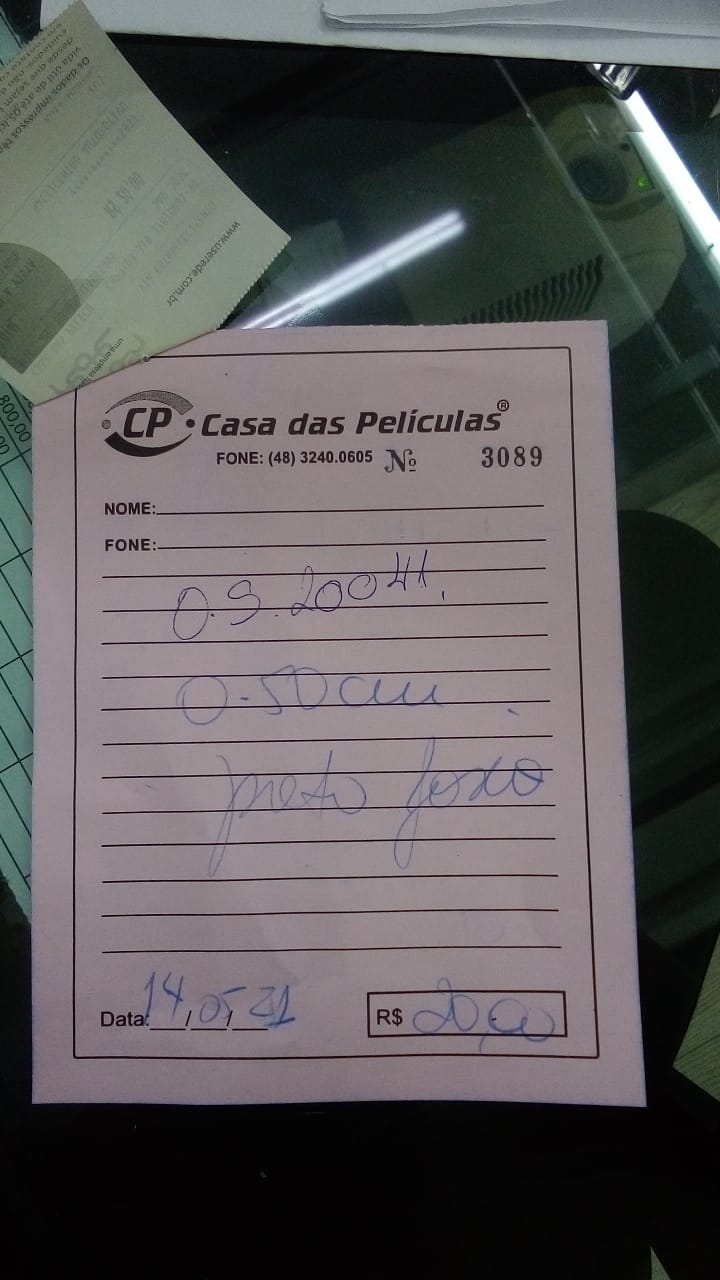 www.userede.com.br
CP Casa das Películas®
FONE: (48) 3240.0605 Nº 3089
NOME:
FONE:
O.S. 20041.
0-50 cm
preto foxo
Data: 14/05/21 R$ 20,00
800,00